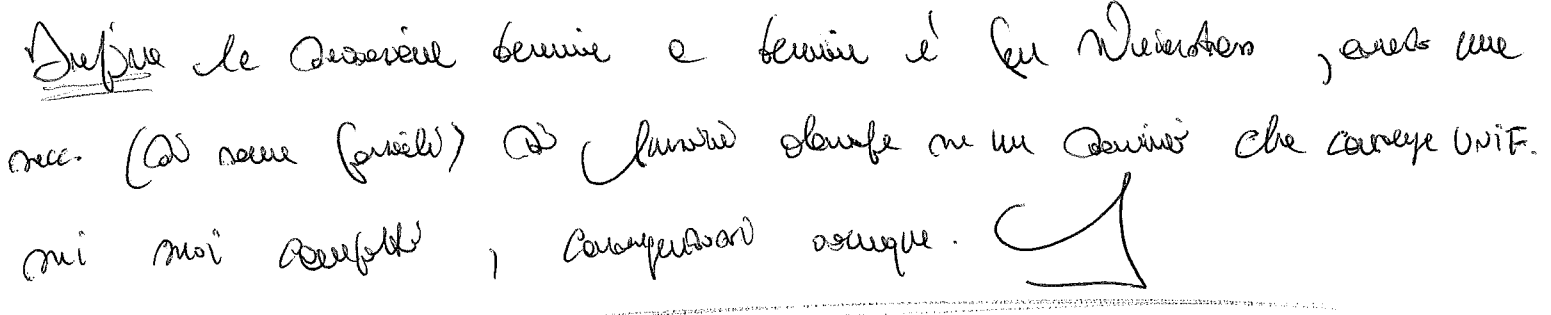 Infine la derivazione termine a termine è per Weierstrass, avendo una
succ. (di somme parziali) di funzioni olomorfe su un dominio che converge UNIF.
sui suoi compatti, convergendo ovunque.